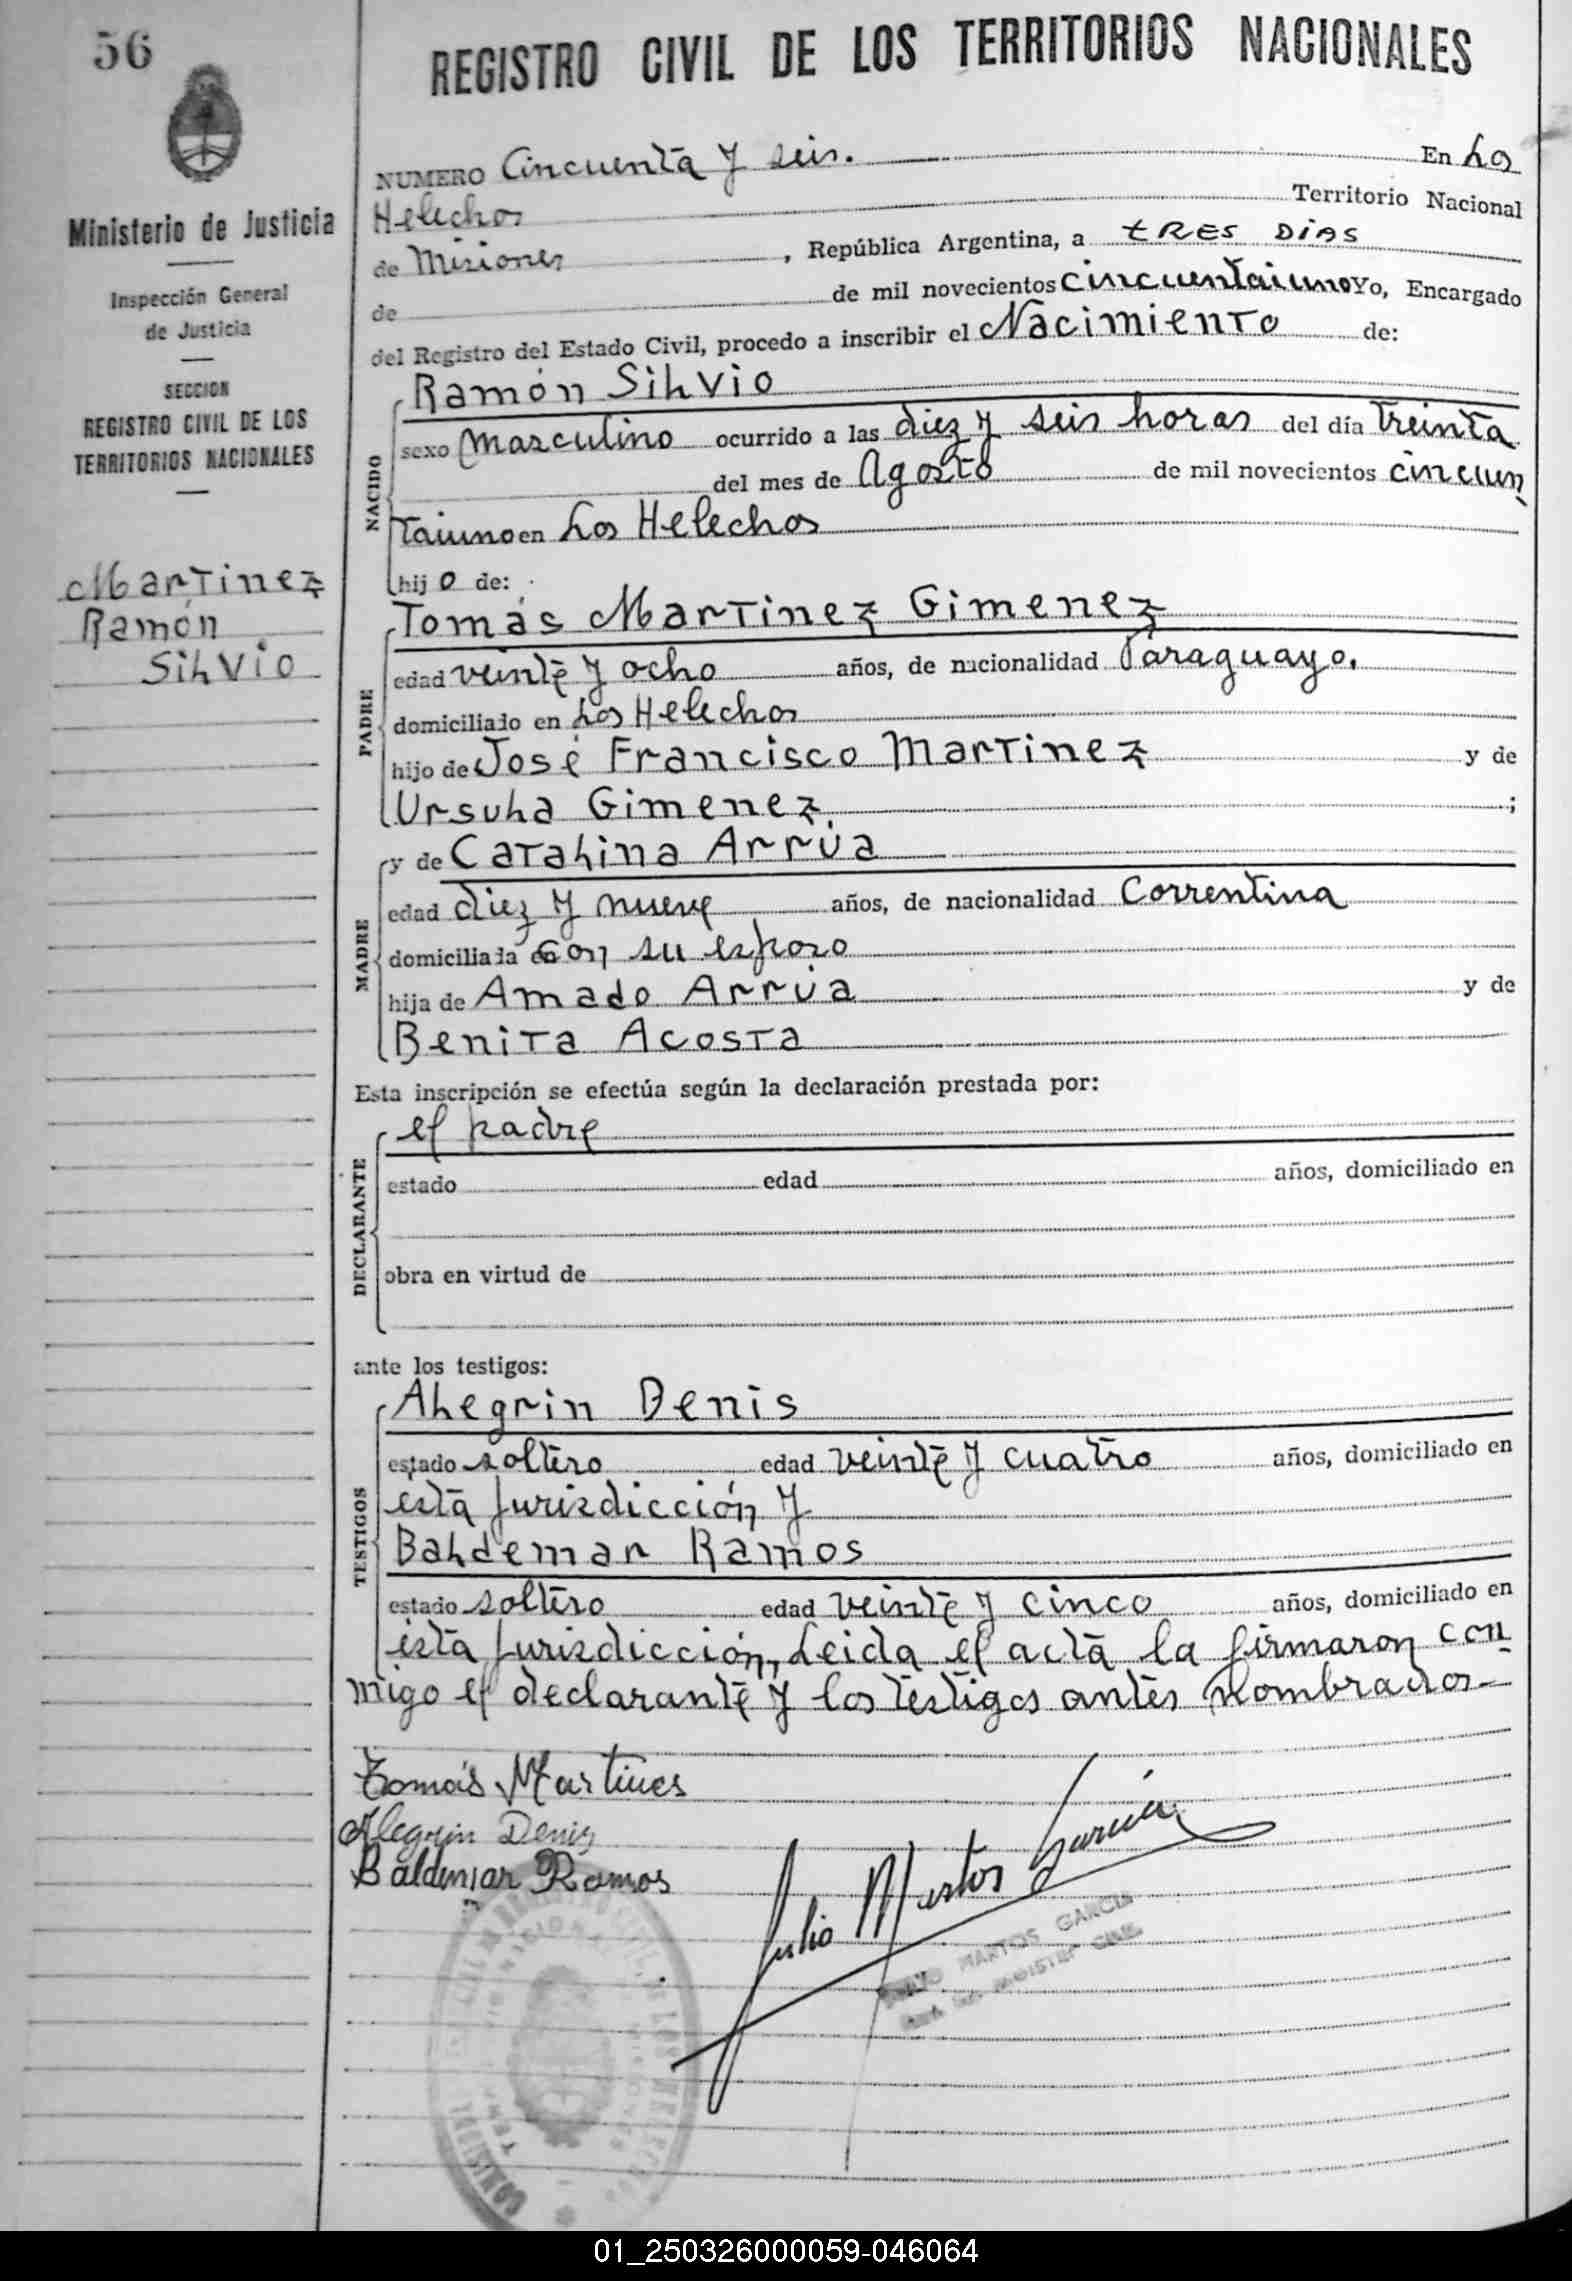 56
REGISTRO CIVIL DE LOS TERRITORIOS NACIONALES
Ministerio de Justicia
Inspección General
de Justicia
SECCION
REGISTRO CIVIL DE LOS
TERRITORIOS NACIONALES
Martinez
Ramón
Silvio
NUMERO Cincuenta y seis. En Los
Helechos Territorio Nacional
de Misiones, República Argentina, a tRES DiAS
de de mil novecientos cincuentaiuno Yo, Encargado
del Registro del Estado Civil, procedo a inscribir el Nacimiento de:
NACIDO
Ramón Silvio
sexo masculino ocurrido a las diez y seis horas del día treinta
del mes de Agosto de mil novecientos cincuen
taiuno en Los Helechos
hijo de:
PADRE
Tomás Martinez Gimenez
edad veinte y ocho años, de nacionalidad Paraguayo.
domiciliado en Los Helechos
hijo de José Francisco Martinez y de
Ursula Gimenez ;
MADRE
y de Catalina Arrúa
edad diez y nueve años, de nacionalidad Correntina
domiciliada con su esposo
hija de Amado Arrúa y de
Benita Acosta
Esta inscripción se efectúa según la declaración prestada por:
DECLARANTE
el padre
estado edad años, domiciliado en
obra en virtud de
ante los testigos:
TESTIGOS
Alegrin Denis
estado soltero edad veinte y cuatro años, domiciliado en
esta jurisdicción y
Baldemar Ramos
estado soltero edad veinte y cinco años, domiciliado en
esta jurisdicción, Leida el acta la firmaron con
migo el declarante y los testigos antes nombrados-
Tomás Martines
Alegrin Denis
Baldemar Ramos
Julio Martos García
JULIO MARTOS GARCIA
01_250326000059-046064